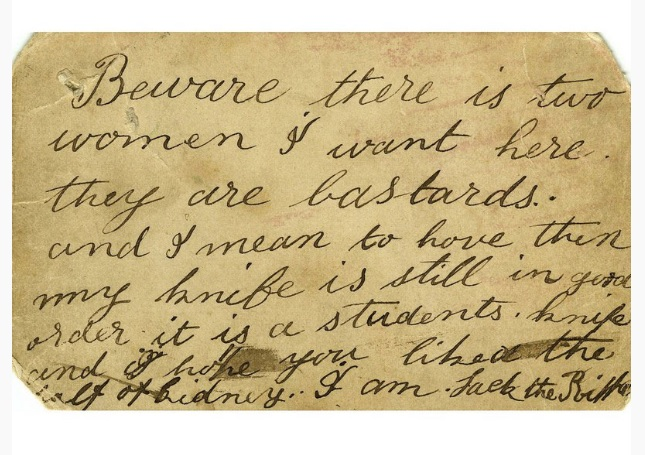 Beware there is two
women I want here.
they are bastards.
and I mean to hove then
my knife is still in good
order it is a students. knife
and I hope you liked the
half of kidney.. I am Jack the Ripper